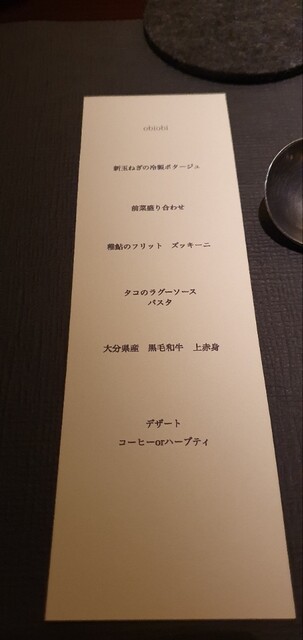 obiobi
新玉ねぎの冷製ポタージュ
前菜盛り合わせ
稚鮎のフリット　ズッキーニ
タコのラグーソース
パスタ
大分県産　黒毛和牛　上赤身
デザート
コーヒーorハーブティ